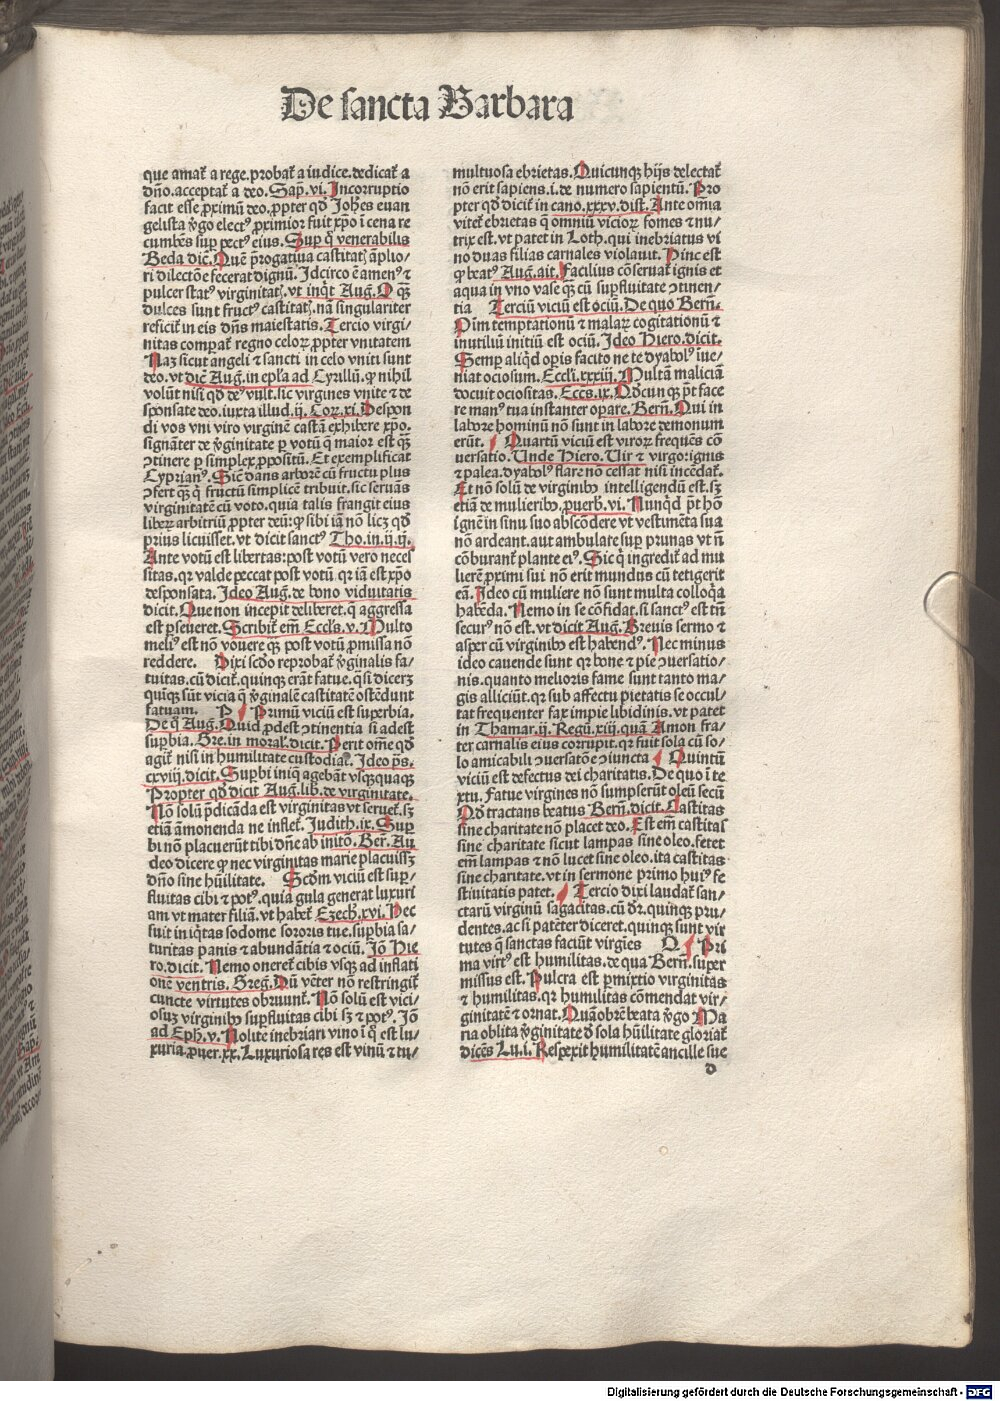 De sancta Barbara
que amat᷑ a rege.probat᷑ a iudice.dedicat᷑ a
dn̄o.acceptat᷑ a deo. Sap̄. vi. Incorruptio
facit esse ꝓximū deo.ꝓpter qd̄ Joh̄es euan
gelista v̄go electꝰ ꝓximior fuit xp̄o ī cena re
cumbēs suꝑ pectꝰ eiꝰ. Suꝑ q̄ venerabilis
Beda dic̄. Quē p̄rogatiua castitat᷑ āplio/
ri dilectōe fecerat dignū. Idcirco ē amenꝰ ⁊
pulcer statꝰ virginitat᷑. vt inq̄t Aug. O qꝫ
dulces sunt fructꝰ castitat᷑. nā singulariter
reficit᷑ in eis dn̄s maiestatis. Tercio virgi/
nitas comꝑat᷑ regno celoꝝ ꝓpter vnitatem
Naꝫ sicut angeli ⁊ sancti in celo vniti sunt
deo. vt dic̄ Aug. in ep̄la ad Cyrillū. ꝙ nihil
volūt nisi qd̄ deꝰ vult. sic virgines vnite ⁊ de
sponsate deo. iuxta illud. ij. Coꝝ. xi. Despon
di vos vni viro virginē castā exhibere xp̄o.
signāter de v̄ginitate ꝑ votū q̄ maior est qꝫ
ↄtinere ꝑ simplex ꝓpositū. Et exemplificat
Cyprianꝰ. Sic̄ dans arborē cū fructu plus
ↄfert qꝫ q̄ fructū simplicē tribuit. sic seruās
virginitatē cū voto. quia talis frangit eius
liberꝝ arbitriū ꝓpter deū: ꝙ sibi iā nō licꝫ qd̄
prius licuisset. vt dicit sanctꝰ Tho. in. ij. ij.
Ante votū est libertas: post votū vero neces
sitas. qꝛ valde peccat post votū qꝛ iā est xp̄o
desponsata. Ideo Aug. de bono viduitatis
dicit. Que non incepit deliberet. q̄ aggressa
est ꝑseueret. Scribit᷑ em̄ Eccl̄s. v. Multo
meliꝰ est nō vouere qꝫ post votū ꝓmissa nō
reddere. Dixi scd̄o reprobat᷑ v̄ginalis fa/
tuitas. cū dicit᷑. quinqꝫ erāt fatue. q̄si dicerꝫ
quinqꝫ sūt vicia q̄ v̄ginalē castitatē ostēdunt
fatuam. P Primū viciū est superbia.
De q̄ Aug. Quid ꝓdest ↄtinentia si adest
suꝑbia. Gre. in moral᷑. dicit. Perit om̄e qd̄
agit᷑ nisi in humilitate custodiat᷑. Ideo ps̄.
cxviij. dicit. Suꝑbi iniq̄ agebāt vsqꝫquaqꝫ
Propter qd̄ dicit Aug. lib. de virginitate.
Nō solū p̄dicāda est virginitas vt seruet᷑. sꝫ
etiā āmonenda ne inflet᷑. Judith. ix. Suꝑ
bi nō placuerūt tibi dn̄e ab initō. Ber. Au
deo dicere ꝙ nec virginitas marie placuissꝫ
dn̄o sine hūilitate. Scd̄m viciū est suꝑ/
fluitas cibi ⁊ potꝰ. quia gula generat luxuri
am vt mater filiā. vt habet᷑ Ezech. xvi. Nec
fuit iniq̄tas sodome sororis tue. suꝑbia sa/
turitas panis ⁊ abundātia ⁊ ociū. Iō Hie
ro. dicit. Nemo oneret᷑ cibis vsqꝫ ad inflati
onē ventris. Greg. Dū vēter nō restringit᷑
cuncte virtutes obruunt᷑. Nō solū est vici/
osuꝫ virginibꝰ suꝑfluitas cibi sꝫ ⁊ potꝰ. Iō
ad Eph. v. Nolite inebriari vino ī q̄ est lu/
xuria. ꝓuer. xx. Luxuriosa res est vinū ⁊ tu/
multuosa ebrietas. Quicunqꝫ hijs delectat᷑
nō erit sapiens. i. de numero sapientū. Pro
pter qd̄ dicit᷑ in cano. xxxv. dist. Ante om̄ia
vitet᷑ ebrietas q̄ omniū vicioꝝ fomes ⁊ nu/
trix est. vt patet in Loth. qui inebriatus vi
no duas filias carnales violauit. Hinc est
ꝙ beatꝰ Aug. ait. Facilius cōseruat᷑ ignis et
aqua in vno vase qꝫ cū suꝑfluitate ↄtinen/
tia Terciū viciū est ociū. De quo Bern̄.
Oīm temptationū ⁊ malaꝝ cogitationū ⁊
inutiliū initiū est ociū. Ideo Hiero. dicit.
Semꝑ aliqd̄ oꝑis facito ne te dyabolꝰ īue/
niat ociosum. Eccl̄i. xxxiij. Multā maliciā
docuit ociositas. Eccs. ix. Qd̄cunqꝫ p̄t face
re manꝰ tua instanter opare. Bern̄. Qui in
labore hominū nō sunt in labore demonum
erūt. Quartū viciū est viroꝝ frequēs cō
uersatio. Unde Hiero. Vir ⁊ virgo: ignis
⁊ palea. dyabolꝰ flare nō cessat nisi incēdat᷑.
Et nō solū de virginibꝰ intelligendū est. sꝫ
etiā de mulieribꝰ. ꝓuerb. vi. Nunqd̄ p̄t hō
ignē in sinu suo abscōdere vt vestimēta sua
nō ardeant. aut ambulate suꝑ prunas vt n̄
cōburant᷑ plante eiꝰ. Sic q̄ ingredit᷑ ad mu
lierē ꝓximi sui nō erit mundus cū tetigerit
eā. Ideo cū muliere nō sunt multa colloq̄a
habēda. Nemo in se cōfidat. si sanctꝰ est tn̄
securꝰ nō est. vt dicit Aug. Breuis sermo ⁊
asper cū virginibꝰ est habendꝰ. Nec minus
ideo cauende sunt qꝛ bone ⁊ pie ↄuersatio/
nis. quanto melioris fame sunt tanto ma/
gis alliciūt. qꝛ sub affectu pietatis se occul/
tat frequenter fax impie libidinis. vt patet
in Thamar. ij. Regū. xiij. quā Amon fra/
ter carnalis eius corrupit. qꝛ fuit sola cū so/
lo amicabili ↄuersatōe ↄiuncta Quintū
viciū est defectus dei charitatis. De quo ī te
xtu. Fatue virgines nō sumpserūt oleū secū
Qd̄ tractans beatus Bern̄. dicit. Castitas
sine charitate nō placet deo. Est em̄ castitas
sine charitate sicut lampas sine oleo. fetet
em̄ lampas ⁊ nō lucet sine oleo. ita castitas
sine charitate. vt in sermone primo huiꝰ fe
stiuitatis patet. Tercio dixi laudat᷑ san/
ctarū virginū sagacitas. cū dr̄. quinqꝫ pru/
dentes. ac si patēter diceret. quinqꝫ sunt vir
tutes q̄ sanctas faciūt virgies Q Pri
ma virtꝰ est humilitas. de qua Bern̄. super
missus est. Pulcra est ꝑmixtio virginitas
⁊ humilitas. qꝛ humilitas cōmendat vir/
ginitatē ⁊ ornat. Quāobrē beata v̄go Ma
ria oblita v̄ginitate d̄ sola hūilitate gloriat᷑
dicēs Lu. i. Respexit humilitatē ancille sue
d
Digitalisierung gefördert durch die Deutsche Forschungsgemeinschaft - DFG